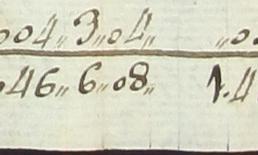 004〃3〃04〃 〃0
046〃6〃08〃 1.4